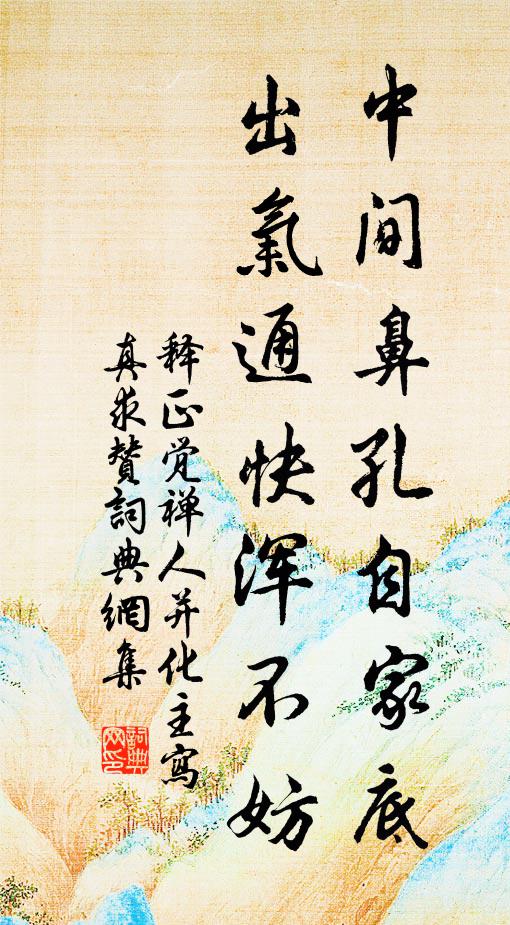 中间鼻孔自家底
出氣通快浑不妨
释正觉禅人并化主寫
真求赞詞典網集
詞典
网印